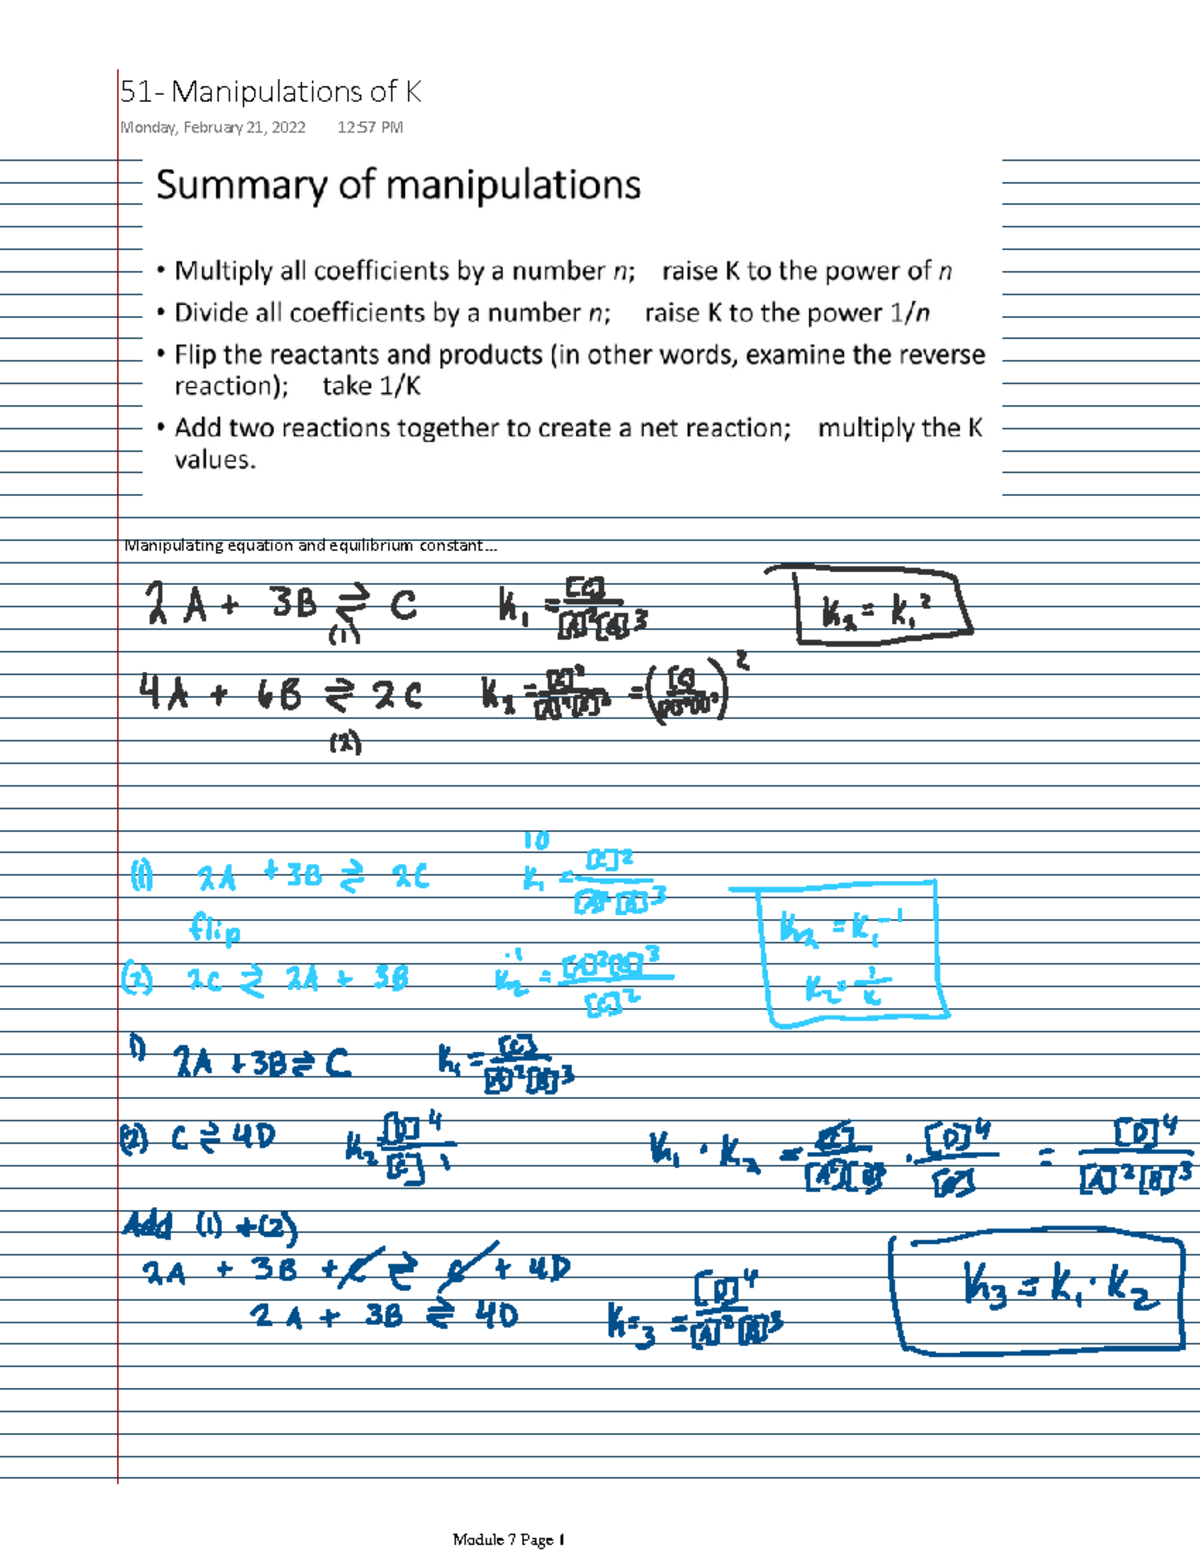 51- Manipulations of K
Monday, February 21, 2022 12:57 PM
Summary of manipulations
• Multiply all coefficients by a number n; raise K to the power of n
• Divide all coefficients by a number n; raise K to the power 1/n
• Flip the reactants and products (in other words, examine the reverse
reaction); take 1/K
• Add two reactions together to create a net reaction; multiply the K
values.
Manipulating equation and equilibrium constant...
2A + 3B ⇌ C K₁ = [C]/[A]²[B]³ K₂ = K₁²
(1)
4A + 6B ⇌ 2C K₂ = [C]²/[A]⁴[B]⁶ = ([C]/[A]²[B]³)²
(2)
10
(1) 2A + 3B ⇌ 2C K₁ = [C]²/[A]²[B]³
flip K₂ = K₁⁻¹
(2) 2C ⇌ 2A + 3B K₂ = [A]²[B]³/[C]² K₂ = 1/K
1) 2A + 3B ⇌ C K₁ = [C]/[A]²[B]³
(2) C ⇌ 4D K₂ [D]⁴/[C]¹ K₁ · K₂ = [C]/[A]²[B]³ · [D]⁴/[C] = [D]⁴/[A]²[B]³
Add (1) + (2)
2A + 3B + C ⇌ C + 4D K₃ = K₁ · K₂
2A + 3B ⇌ 4D K₃ = [D]⁴/[A]²[B]³
Module 7 Page 1